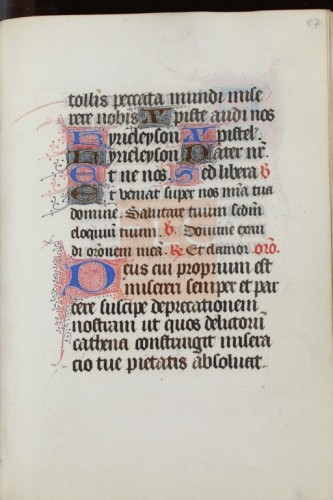 87
tollis peccata mundi mise
rere nobis Xpiste audi nos
Kyrieleyson Xpistel.
Kyrieleyson Pater nr̃.
Et ne nos. Sed libera ℣
Et veniat super nos mĩa tua
domine. Salutare tuum sedm̃
eloquiũ tuum. ℣. Domine exau
di orõnem meã. ℟. Et clamor. orõ.
Deus cui proprium est
misereri semper et par
cere suscipe deprecationem
nostram ut quos delictorũ
cathena constringit misera
cio tue pietatis absoluat.